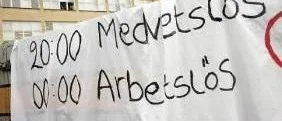 20:00 Medvetslös
00:00 Arbetslös